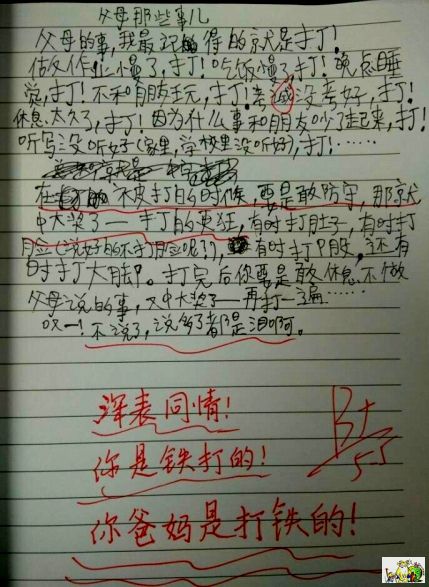 父母那些事儿
父母的事,我最记得的就是打!
作业慢了,打!吃饭慢了,打!晚点睡
觉,打!不和朋友玩,打!考没考好,打!
休息太久了,打!因为什么事和朋友吵了起来,打!
听写没听好(家里,学校里没听好),打!……
在被打的时候,要是敢防守,那就
中大奖了——打的更狂,有时打肚子,有时打
脸(说好的不打脸呢?),有时打P股,还有
时打大腿。打完后你要是敢休息不做
父母说的事,又中大奖了——再打一遍……
哎!不说了,说多了都是泪啊。
深表同情!
你是铁打的!
你爸妈是打铁的!
B+